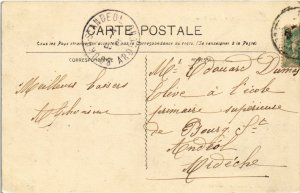 CARTE POSTALE
Tous les Pays étrangers n'acceptent pas la Correspondance au recto. (Se renseigner à la Poste)
CORRESPONDANCE
Meilleurs baisers
Alphonsine
Mr Edouard Dumas
Elève à l'école
primaire supérieure
de Bourg St
Andéol
Ardèche